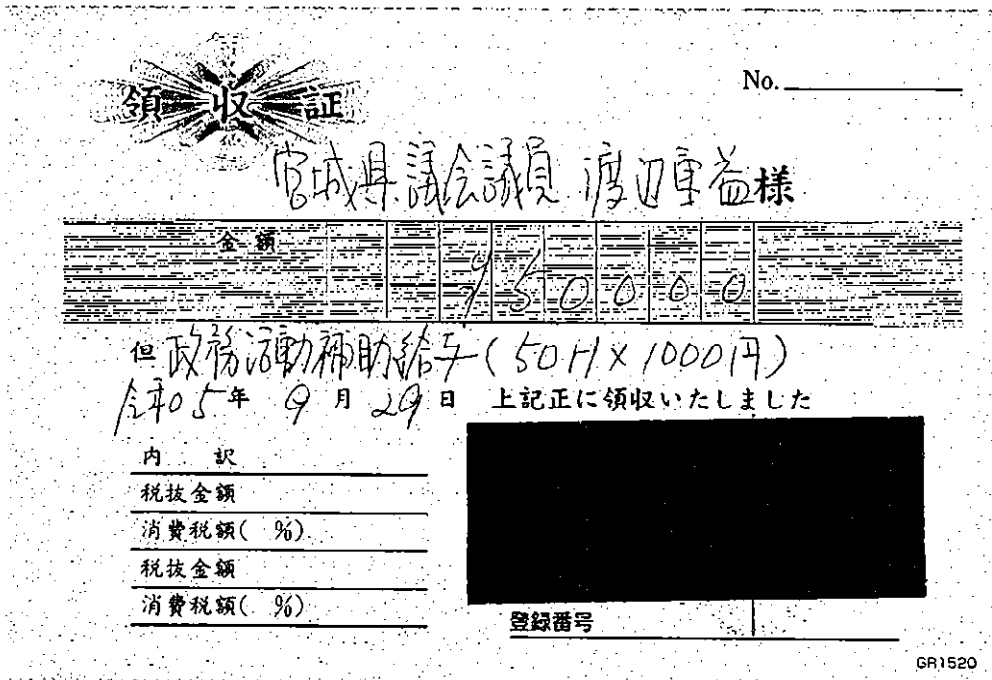 領収証
No.
宮城県議会議員 渡辺重益様
金額
¥50000
但 政務活動補助給与(50H×1000円)
令和05年 9月29日 上記正に領収いたしました
内 訳
税抜金額
消費税額( %)
税抜金額
消費税額( %)
登録番号
GR1520